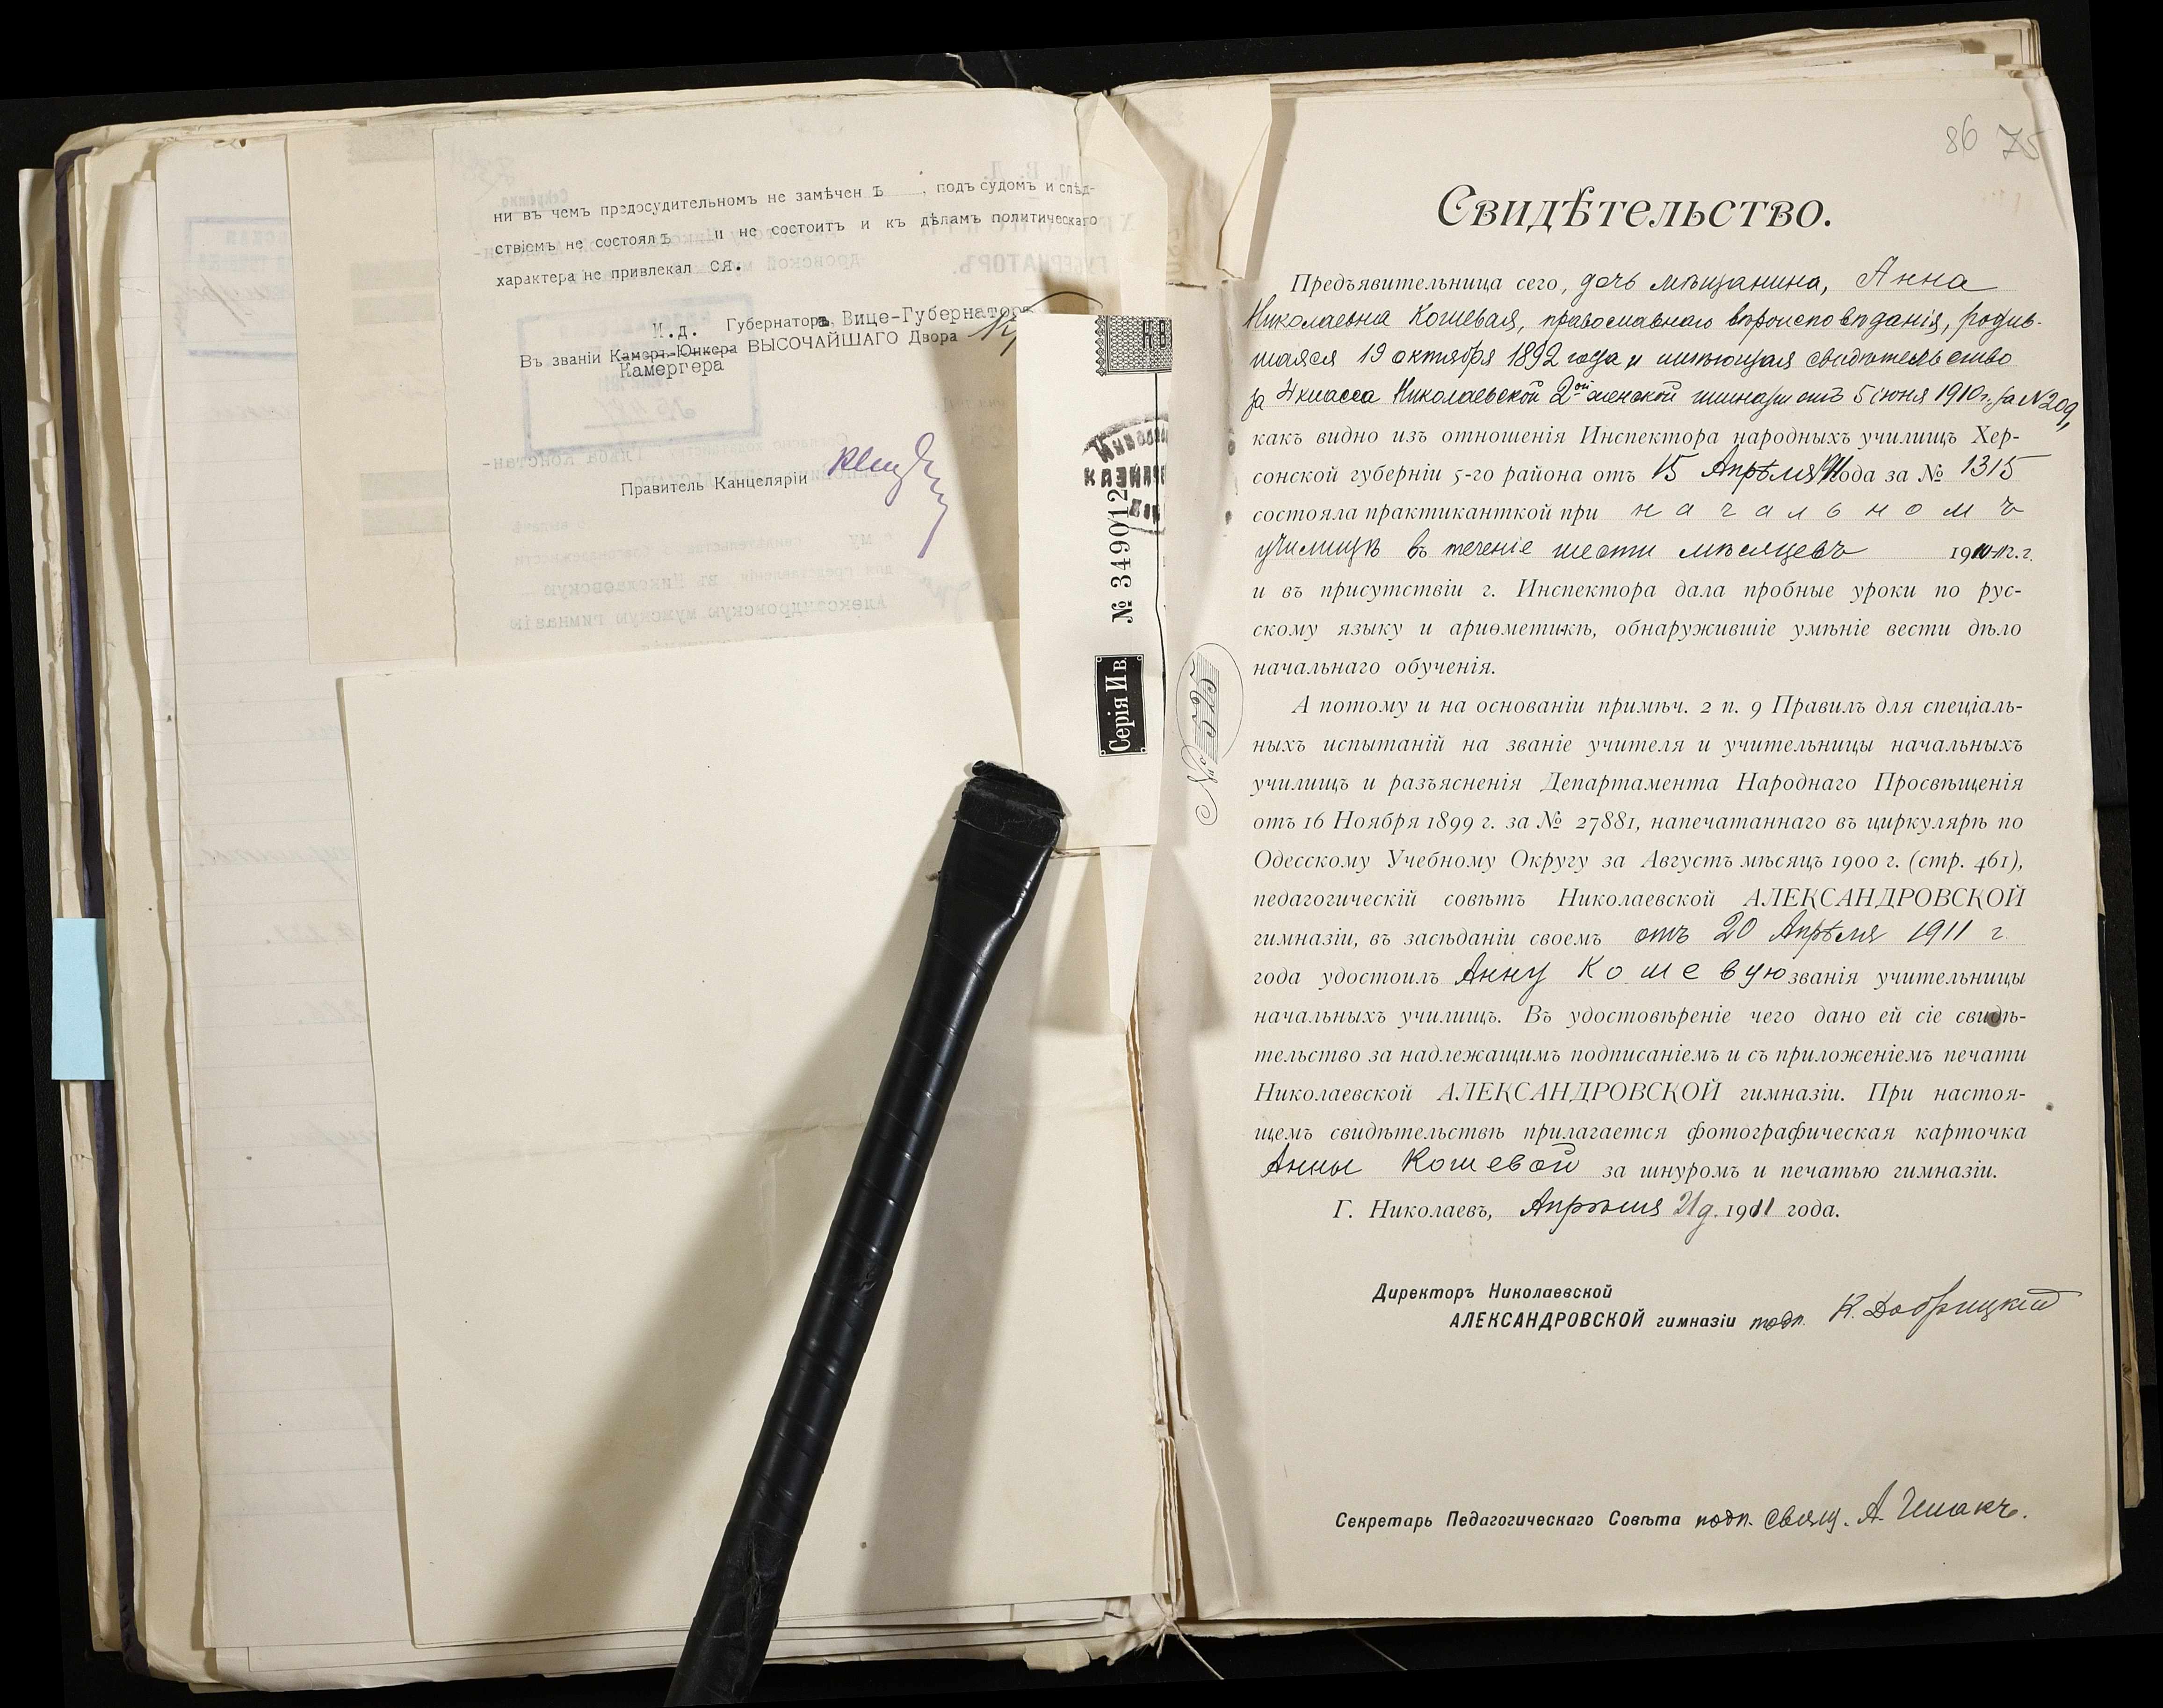 ни въ чемъ предосудительномъ не замѣчен ъ , подъ судомъ и слѣд-
ствіемъ не состоялъ и не состоитъ и къ дѣламъ политическаго
характера не привлекал ся.
И.д. Губернатора, Вице-Губернаторъ
Въ званіи Камеръ-Юнкера ВЫСОЧАЙШАГО Двора
Камергера
Правитель Канцеляріи
№ 349012
Серія И в.
86 75
Свидѣтельство.
Предъявительница сего, дочь мѣщанина, Анна
Николаевна Кошевая, православнаго вѣроисповѣданія, родив-
шаяся 19 октября 1892 года и имѣющая свидѣтельство
за 4 класса Николаевской 2ой женской гимназіи отъ 5 іюня 1910 г. за № 209,
какъ видно изъ отношенія Инспектора народныхъ училищъ Хер-
сонской губерніи 5-го района отъ 15 Апрѣля 1911 года за № 1315
состояла практиканткой при начальномъ
училищѣ въ теченіе шести мѣсяцевъ 1910-11 г.г.
и въ присутствіи г. Инспектора дала пробные уроки по рус-
скому языку и ариѳметикѣ, обнаружившіе умѣніе вести дѣло
начальнаго обученія.
А потому и на основаніи примѣч. 2 п. 9 Правилъ для спеціаль-
ныхъ испытаній на званіе учителя и учительницы начальныхъ
училищъ и разъясненія Департамента Народнаго Просвѣщенія
отъ 16 Ноября 1899 г. за № 27881, напечатаннаго въ циркулярѣ по
Одесскому Учебному Округу за Августъ мѣсяцъ 1900 г. (стр. 461),
педагогическій совѣтъ Николаевской АЛЕКСАНДРОВСКОЙ
гимназіи, въ засѣданіи своемъ отъ 20 Апрѣля 1911 г
года удостоилъ Анну Кошевую званія учительницы
начальныхъ училищъ. Въ удостовѣреніе чего дано ей сіе свидѣ-
тельство за надлежащимъ подписаніемъ и съ приложеніемъ печати
Николаевской АЛЕКСАНДРОВСКОЙ гимназіи. При настоя-
щемъ свидѣтельствѣ прилагается фотографическая карточка
Анны Кошевой за шнуромъ и печатью гимназіи.
Г. Николаевъ, Апрѣля 21 д. 1911 года.
Директоръ Николаевской
АЛЕКСАНДРОВСКОЙ гимназіи подп. К. Добрицкій
Секретарь Педагогическаго Совѣта подп. свящ. А.